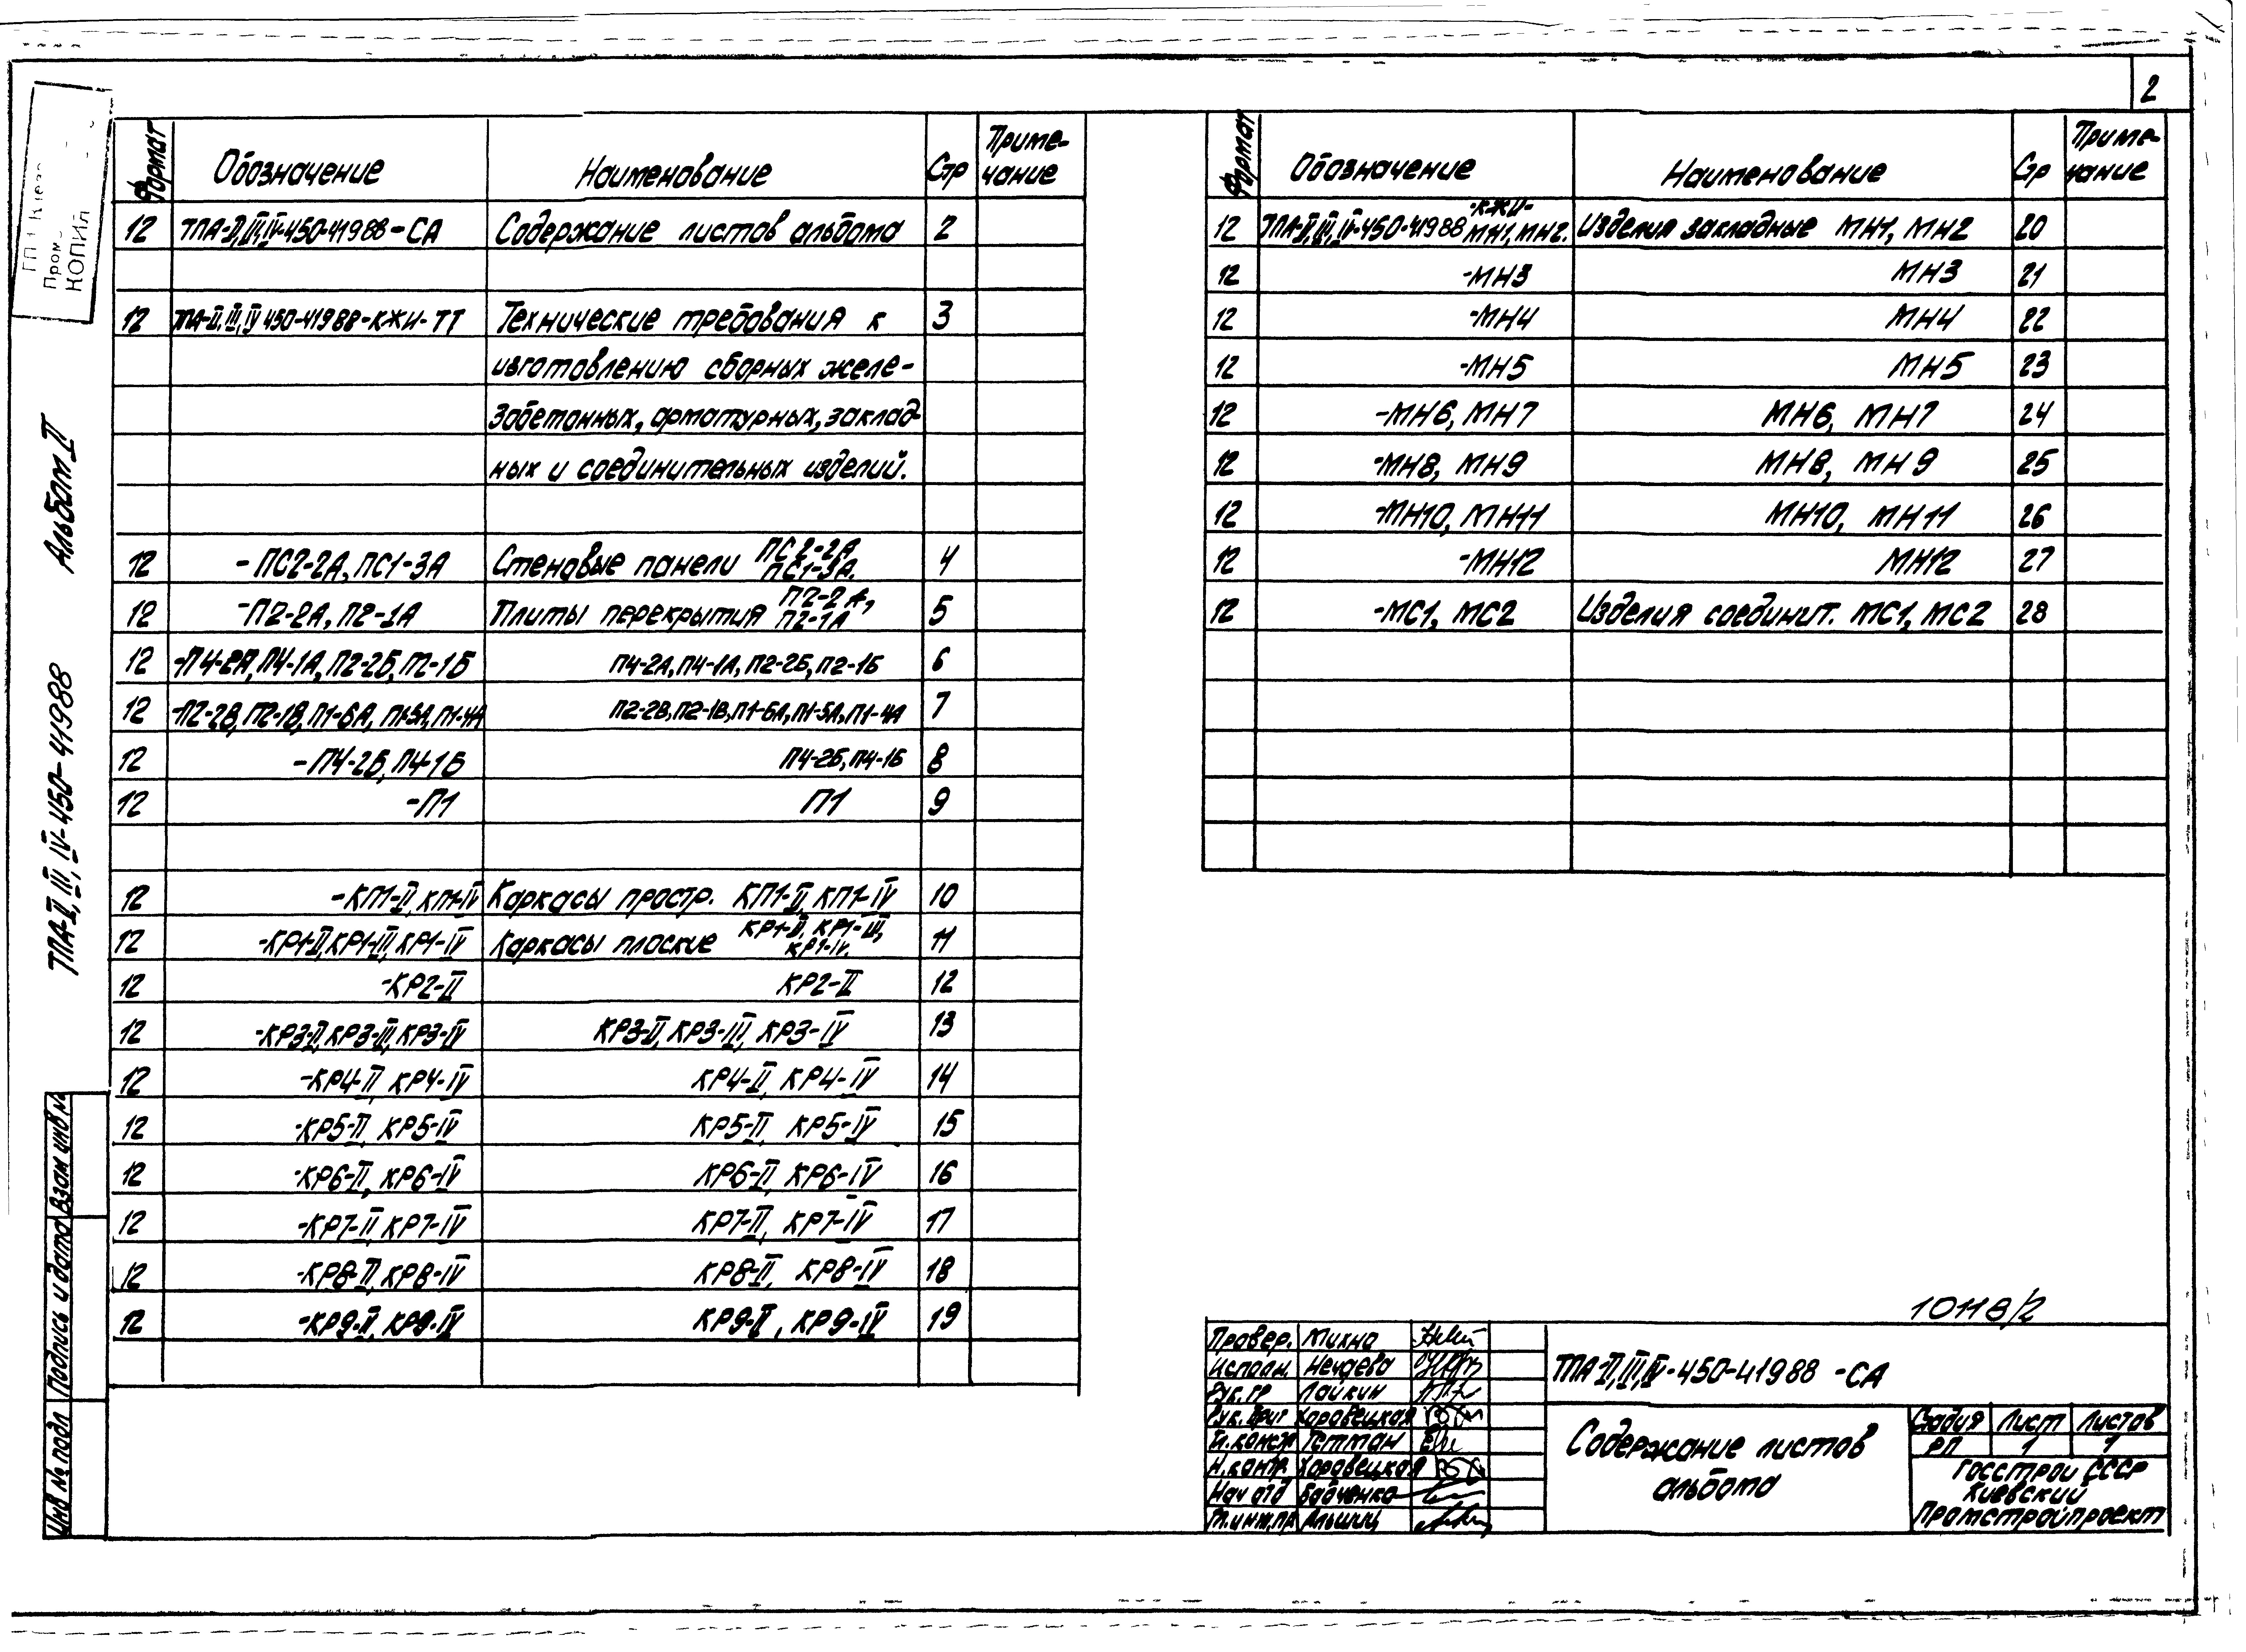 2
КОПИЯ
Альбом II
ТПА-II, III, IV-450-41988
Инв № подл Подпись и дата Взам инв №
Формат Обозначение Наименование Стр Приме-
чание
12 ТПА-II,III,IV-450-41988-СА Содержание листов альбома 2
12 ТПА-II,III,IV 450-41988-КЖИ-ТТ Технические требования к 3
изготовлению сборных желе-
зобетонных, арматурных, заклад-
ных и соединительных изделий.
12 -ПС2-2А, ПС1-3А Стеновые панели ПС2-2А ПС1-3А. 4
12 -П2-2А, П2-1А Плиты перекрытия П2-2А, П2-1А 5
12 -П4-2А, П4-1А, П2-2Б, П2-1Б П4-2А, П4-1А, П2-2Б, П2-1Б 6
12 -П2-2В, П2-1В, П1-6А, П1-5А, П1-4А П2-2В, П2-1В, П1-6А, П1-5А, П1-4А 7
12 -П4-2Б, П4-1Б П4-2Б, П4-1Б 8
12 -П1 П1 9
12 -КП1-II, КП1-IV Каркасы простр. КП1-II, КП1-IV 10
12 -КР1-II, КР1-III, КР1-IV Каркасы плоские КР1-II, КР1-III, КР1-IV. 11
12 -КР2-II КР2-II 12
12 -КР3-II, КР3-III, КР3-IV КР3-II, КР3-III, КР3-IV 13
12 -КР4-II, КР4-IV КР4-II, КР4-IV 14
12 -КР5-II, КР5-IV КР5-II, КР5-IV 15
12 -КР6-II, КР6-IV КР6-II, КР6-IV 16
12 -КР7-II, КР7-IV КР7-II, КР7-IV 17
12 -КР8-II, КР8-IV КР8-II, КР8-IV 18
12 -КР9-II, КР9-IV КР9-II, КР9-IV 19
Формат Обозначение Наименование Стр Приме-
чание
12 ТПА-II,III,IV-450-41988 -КЖИ- МН1, МН2. Изделия закладные МН1, МН2 20
12 -МН3 МН3 21
12 -МН4 МН4 22
12 -МН5 МН5 23
12 -МН6, МН7 МН6, МН7 24
12 -МН8, МН9 МН8, МН9 25
12 -МН10, МН11 МН10, МН11 26
12 -МН12 МН12 27
12 -МС1, МС2 Изделия соединит. МС1, МС2 28
10118/2
Провер. Михно
Исполн. Нечаева
Рук. гр Лайкин
Рук. бриг Харавецкая
Гл. констр Гетман
Н. контр. Харавецкая
Нач отд Бабченко
Гл. инж. пр Альшиц
ТПА-II,III,IV-450-41988 -СА
Содержание листов
альбома
Стадия Лист Листов
РП 1 1
Госстрой СССР
Киевский
Промстройпроект